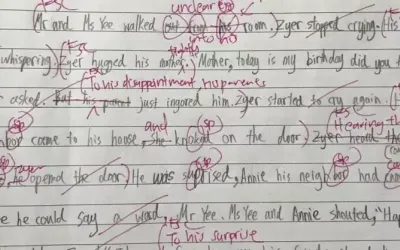 Esc unclear Esc
Mr and Ms Yee walked out from his room. Zyer stopped crying. (His
Esc tightly into
whispering) Zyer hugged his mother. Mother, today is my birthday did you
To his disappointment
asked. But his parent just ingored him. Zyer started to cry again.
and sp Hearing
came to his house, she knoked on the door) Zyer heard the
sp sp
, he openend the door) He was suprised, Annie his neighbor had
he could say a word, Mr Yee. Ms Yee and Annie shouted, "Hap
To his surprise